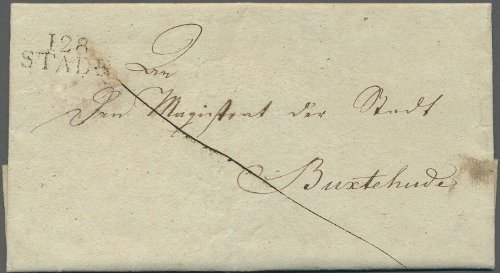 128
STADE
An
Den Magistrat der Stadt
Buxtehude